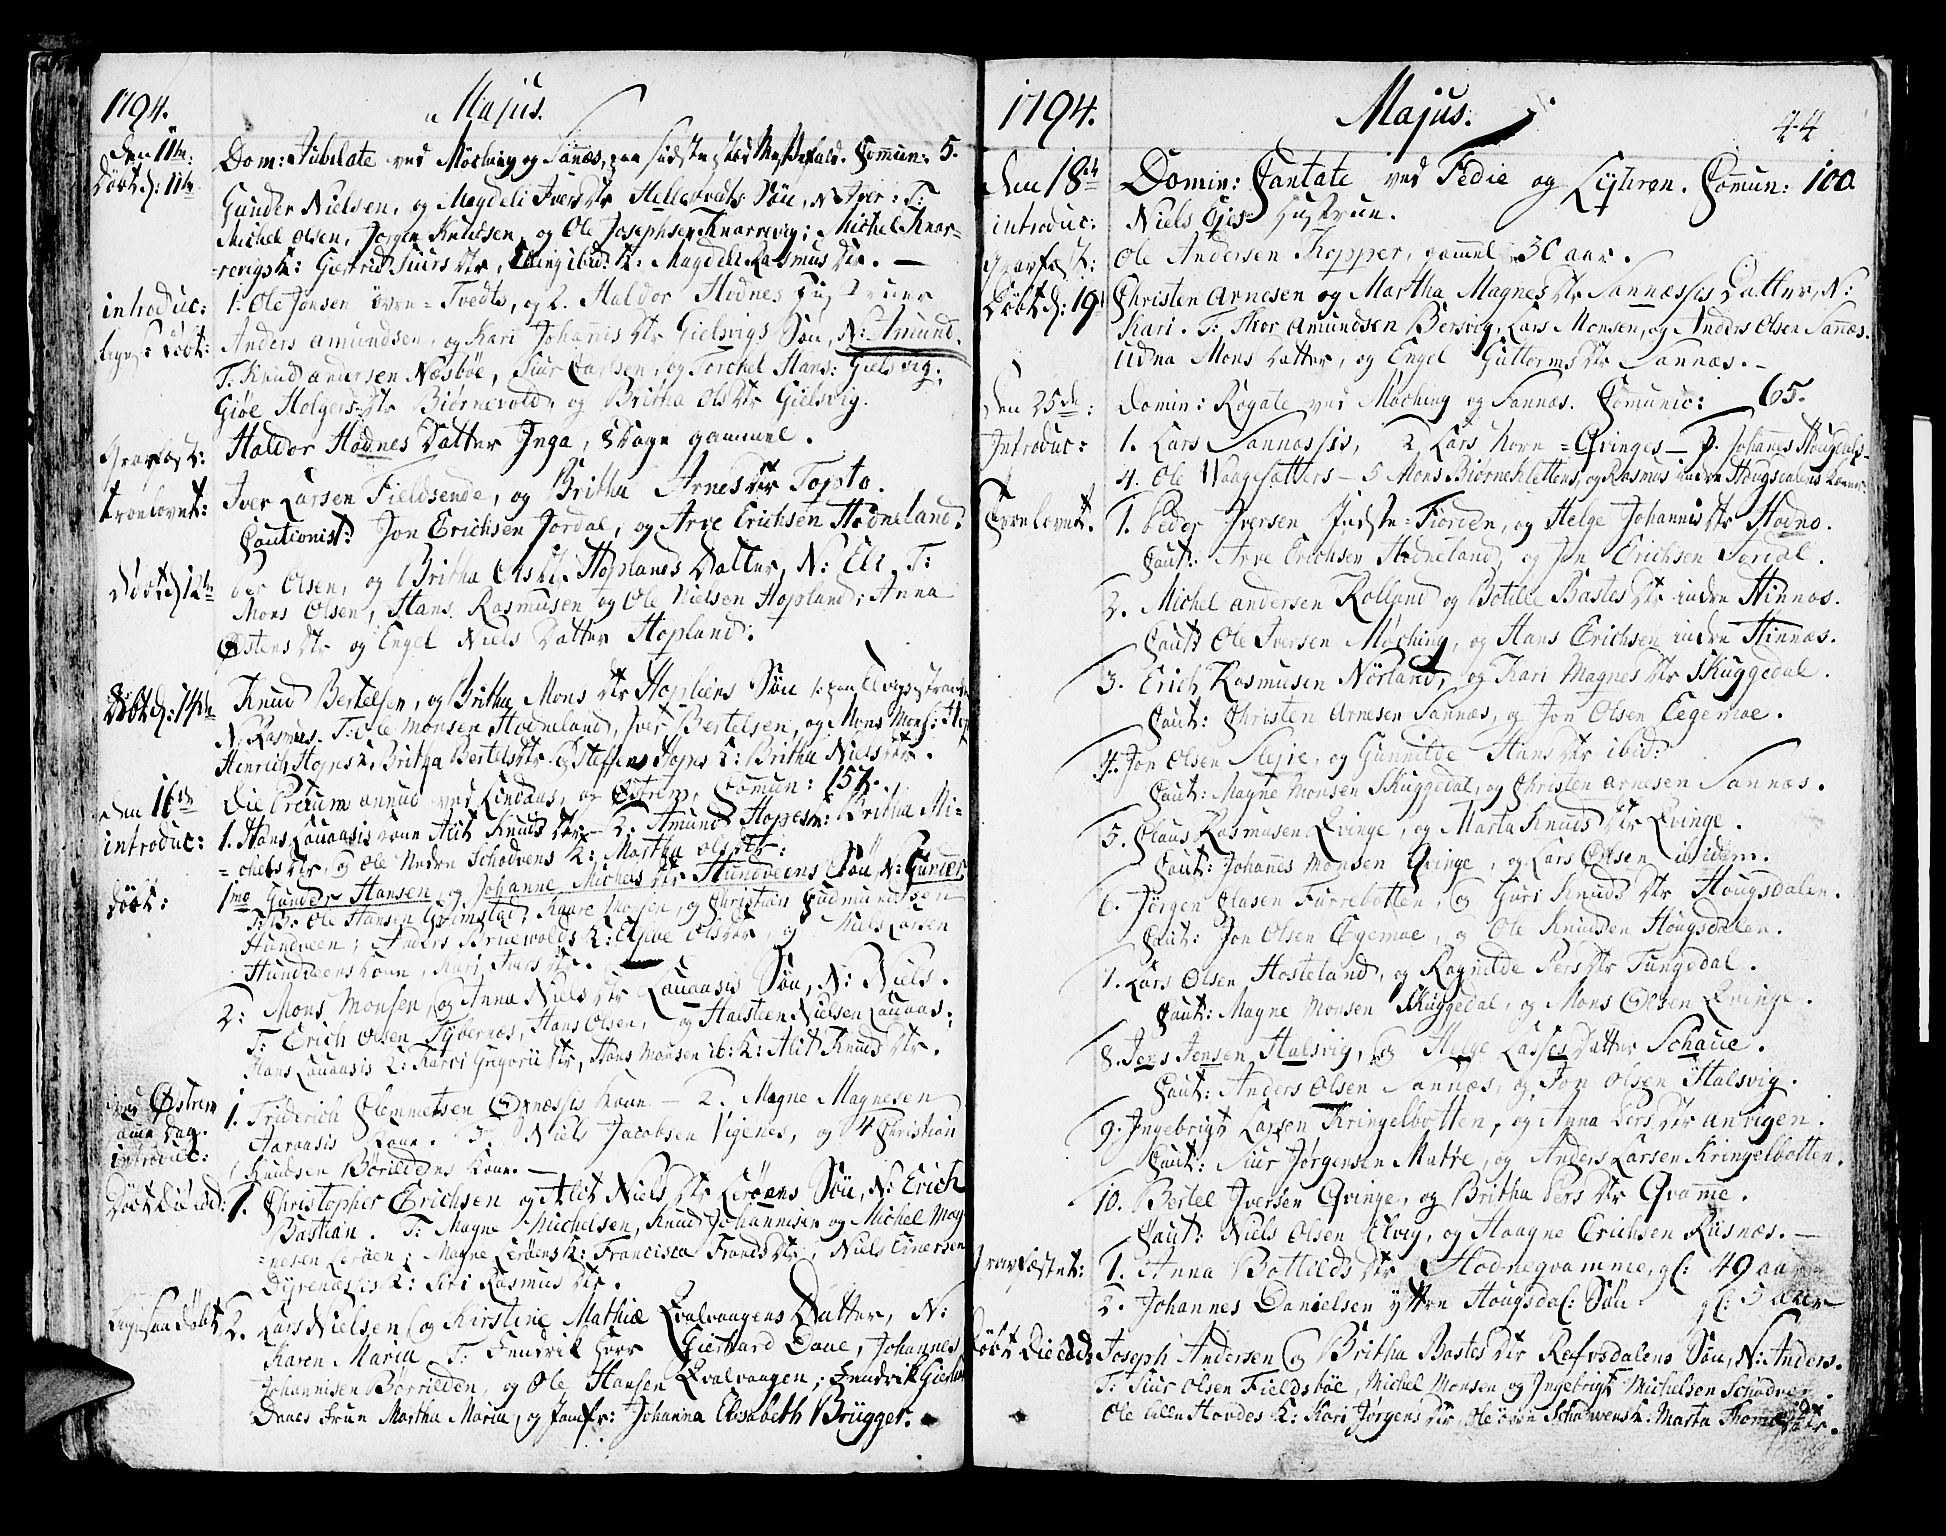 1794. Majus.
den 11te: Dom: Jubilate ved Möching og Sannæs, Commun: 5.
Döbt d: 11te Gunder Nielsen, og Magdeli Ivers dtr Hellesvedts Søn, N: Iver: T:
Michel Olsen, Jørgen Knudsen, og Ole Josephsen Knarrevig; Michel Knar-
revigs K: Giertrud Siurs dtr, ibid: K: Magdeli Rasmus dtr. —
introduc: 1. Ole Jonsen övre-Tvedts, og 2. Haldor Hodnes Hustruer
Døbt: Anders Amundsen, og Kari Johannis dtr Gielsvigs Søn, N: Amund.
T: Knud Andersen Næsbøe, Siur Carlsen, og Torchel Hans: Gielsvig;
Giøe Holgers dtr Biörnevold, og Britha Ols dtr Gielsvig.
Jordfæst: Haldor Hodnes Datter Inga, 8 Dage gammel.
troelovet: Iver Larsen Fieldsende, og Britha Arnes dtr Topta.
Cautionist: Jon Erichsen Jordal, og Arve Erichsen Hodneland.
Døbt d 12te Per Olsen, og Britha Ols dtr Hoplands Datter, N: Eli. T:
Mons Olsen, Hans Rasmusen og Ole Nielsen Hopland; Anna
Østens dtr og Engel Niels Datter Hopland:
Døbt d: 14de Knud Bertelsen, og Britha Mons dtr Hopliens Søn
N: Rasmus. T: Ole Monsen Hodneland, Iver Bertelsen, og Mons Mons: Hop
Hinrich Hopes K: Britha Bertels dtr og Steffens Hopes K: Britha Niels dtr.
den 16de Die Precum annuo ved Lindaas, og Østrem, Commun: 157.
introduc: 1. Hans Lauaasis kone Alit Knuds dtr — 2. Amund Hopes K: Britha Mi-
chels dtr, og Ole Nedre Schodvens K: Martha Ols dtr:
døbt: 1mo Gunder Hansen, og Johanne Michels dtr Hundveens Søn, N: Gunder
T: Ole Hansen Grimstad, Kaare Mogsen, og Christian Gudmundssen
Hundveen; Anders Bruevolds K: Ols dtr, og Niels Larsen
Hundveens kone, Kari Ivers dtr.
2: Mons Monsen, og Anna Niels dtr Lauaasis Søn, N: Niels.
T: Erich Olsen Fyllingsnæs, Hans Olsen, og Halsteen Nielsen Lauaas;
Hans Lauaasis K: Kari Gregorii dtr, Hans Monsen ib: K: Alit Knuds dtr.
ved Østrem
samme Dag.
introduc: 1. Friderich Clemmetsen Odnæssis kone — 2. Magne Magnesen
Aaraasis kone. 3. Niels Jacobsen Vigenes, og 4 Christian
Knudsen Börildens kone. —
Døbt Die eod: 1. Christopher Erichsen og Alit Niels dtr Leröens Søn, N: Erich
Bastian. T: Magne Michelsen, Knud Johannisen og Michel Mag-
nesen Leröen; Magne Leröens K: Francisca Frands dtr, Niels Einersen
Dyrenæssis K: Siri Rasmus dtr.
Døbt 2. Lars Nielsen, og Kirstine Mathiæ Qvalvaagens Datter, N:
Karen Maria T: Hendrik Gierhard Dane, Johannes
Johannisen Börrilden, og Ole Hansen Qvalvaagen; Hendrik Gierhard
Danes Frue Martha Maria, og Jomfr: Johanna Elisabeth Brügger.
1794. Majus. 44
den 18de Domin: Cantate ved Fedie og Lyhren. Commun: 100
introduc: Niels Eies Hustrue.
Jordfæst: Ole Andersen Kopper, gammel 30 aar.
Døbt d: 19 Christen Arnesen og Martha Magnes dtr Sannæssis Datter, N:
Kari. T: Thor Amundsen Bersvig, Lars Monsen, og Anders Olsen Sannæs.
Udna Mons Datter, og Engel Guttorms dtr Sannæs. —
den 25de: Domin: Rogate ved Möching og Sannæs. Communic: 65.
Introduc: 1. Lars Sannæssis, 2 Lars Norn-Qvinges — 3. Johannes Hougsdals
4. Ole Waagsætters — 5 Mons Biörneklettens, og Rasmus indre Hougsdalens koner.
Troelovet. 1. Peder Iversen Indste-Fiorden, og Helge Johannis dtr Hodne.
Caut: Arve Erichsen Hodneland, og Jon Erichsen Jordal.
2. Michel Andersen Rolland og Botille Bastes dtr indre Hinnæs.
Caut: Ole Iversen Möching, og Hans Erichsen indre Hinnæs.
3. Erich Rasmusen Nørland, og Kari Magnes dtr Skuggedal.
Caut: Christen Arnesen Sannæs, og Jon Olsen Eegemoe.
4. Jon Olsen Sleire, og Gunnilde Hans dtr ibid:
Caut: Magne Monsen Skuggedal, og Christen Arnesen Sannæs.
5. Claus Rasmusen Qvinge, og Marta Knuds dtr Qvinge.
Caut: Johannes Monsen Qvinge, og Lars Olsen ibidem.
6. Jörgen Clasen Furrebotten, og Guri Knuds dtr Hougsdalen.
Caut: Jon Olsen Egemoe, og Ole Knudsen Hougsdalen.
7. Lars Olsen Hosteland, og Ragnilde Pers dtr Tungedal.
Caut: Magne Monsen Skuggedal, og Mons Olsen Qvinge.
8. Jens Jensen Halsvig, og Helge Lasses Datter Schaue.
Caut: Anders Olsen Sannæs, og Jon Olsen Halsvig.
9. Ingebrigt Larsen Kringelbotten, og Anna Pers dtr Anvigen.
Caut: Siur Jørgensen Matre, og Anders Larsen Kringelbotten.
10. Bertel Iversen Qvinge, og Britha Pers dtr Qvamme.
Caut: Niels Olsen Elvig, og Haagne Erichsen Riisnæs. —
Jordfæstet: 1. Anna Bottilds dtr Hodneqvamme, gl: 49 aar
2. Johannes Danielsen yttre Hougsdal: Søn gl: 5 Aar
Døbt Die eod: Joseph Andersen og Britha Bastes dtr Refvsdalens Søn, N: Anders.
T: Siur Olsen Fieldsbøe, Michel Monsen og Ingebrigt Michelsen Schodven.
Ole Hovdes K: Kari Jørgens dtr, Ole övre Schodvens K: Marta Thomæ dtr.